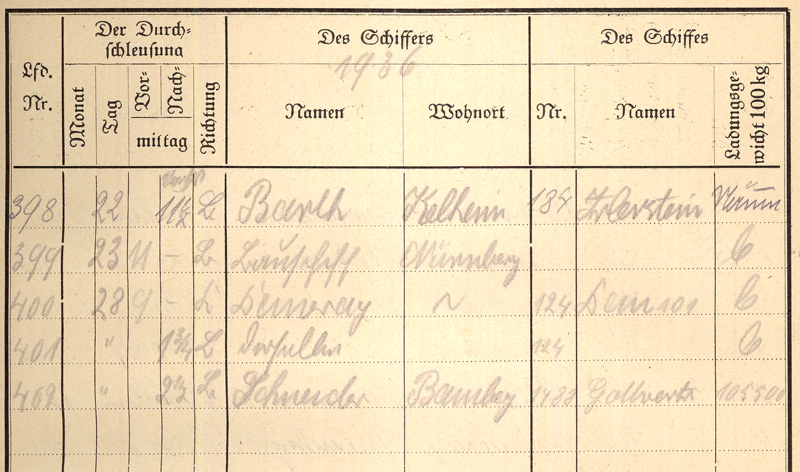 Lfd. Nr. Der Durch-schleusung Des Schiffers Des Schiffes
1936
Monat Tag Vor- Nach- mittag Richtung Namen Wohnort Nr. Namen Ladungsge-wicht 100 kg
398 22 11½ L Barth Kelheim 184
399 23 11 - L Bauschiff Nürnberg
400 28 9 - L Demeray ~ 124
401 " 1¾ L derselbe 124
402 " 2½ L Schneider Bamberg 1488 105500